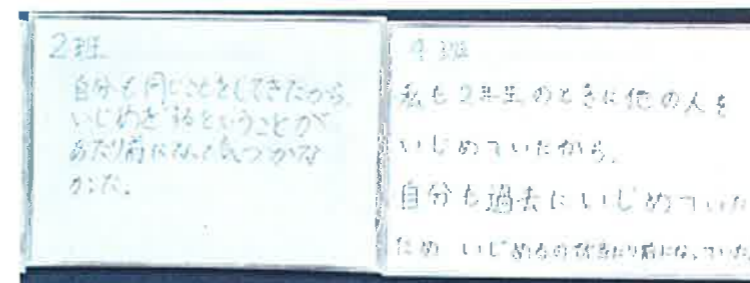 2班
自分も同じことをしてきたから
いじめをするということが
あたり前になって気づかな
かった。
4班
私も2年生のときに他の人を
いじめていたから。
自分も過去にいじめていた
ため いじめるのが当たり前になっていた